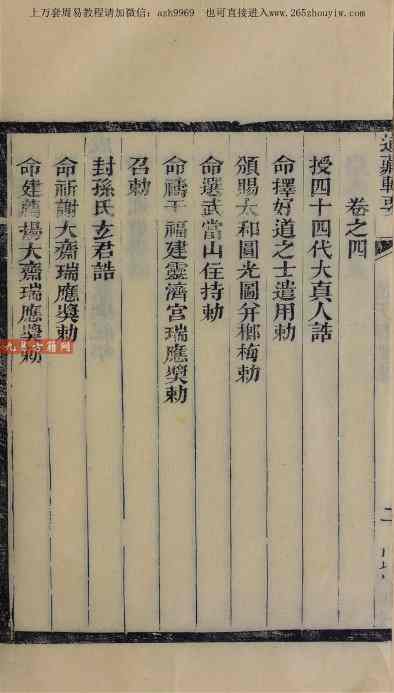 上万套周易教程请加微信：ash9969 也可直接进入www.265zhouyiw.com
道藏輯要
卷之四
授四十四代大真人誥
命擇好道之士遣用勅
頒賜太和圓光圖并榔梅勅
命選武當山住持勅
命禱于福建靈濟宮瑞應奬勅
召勅
封孫氏玄君誥
命祈謝大齋瑞應奬勅
命建薦揚大齋瑞應奬勅
二
九思古籍网